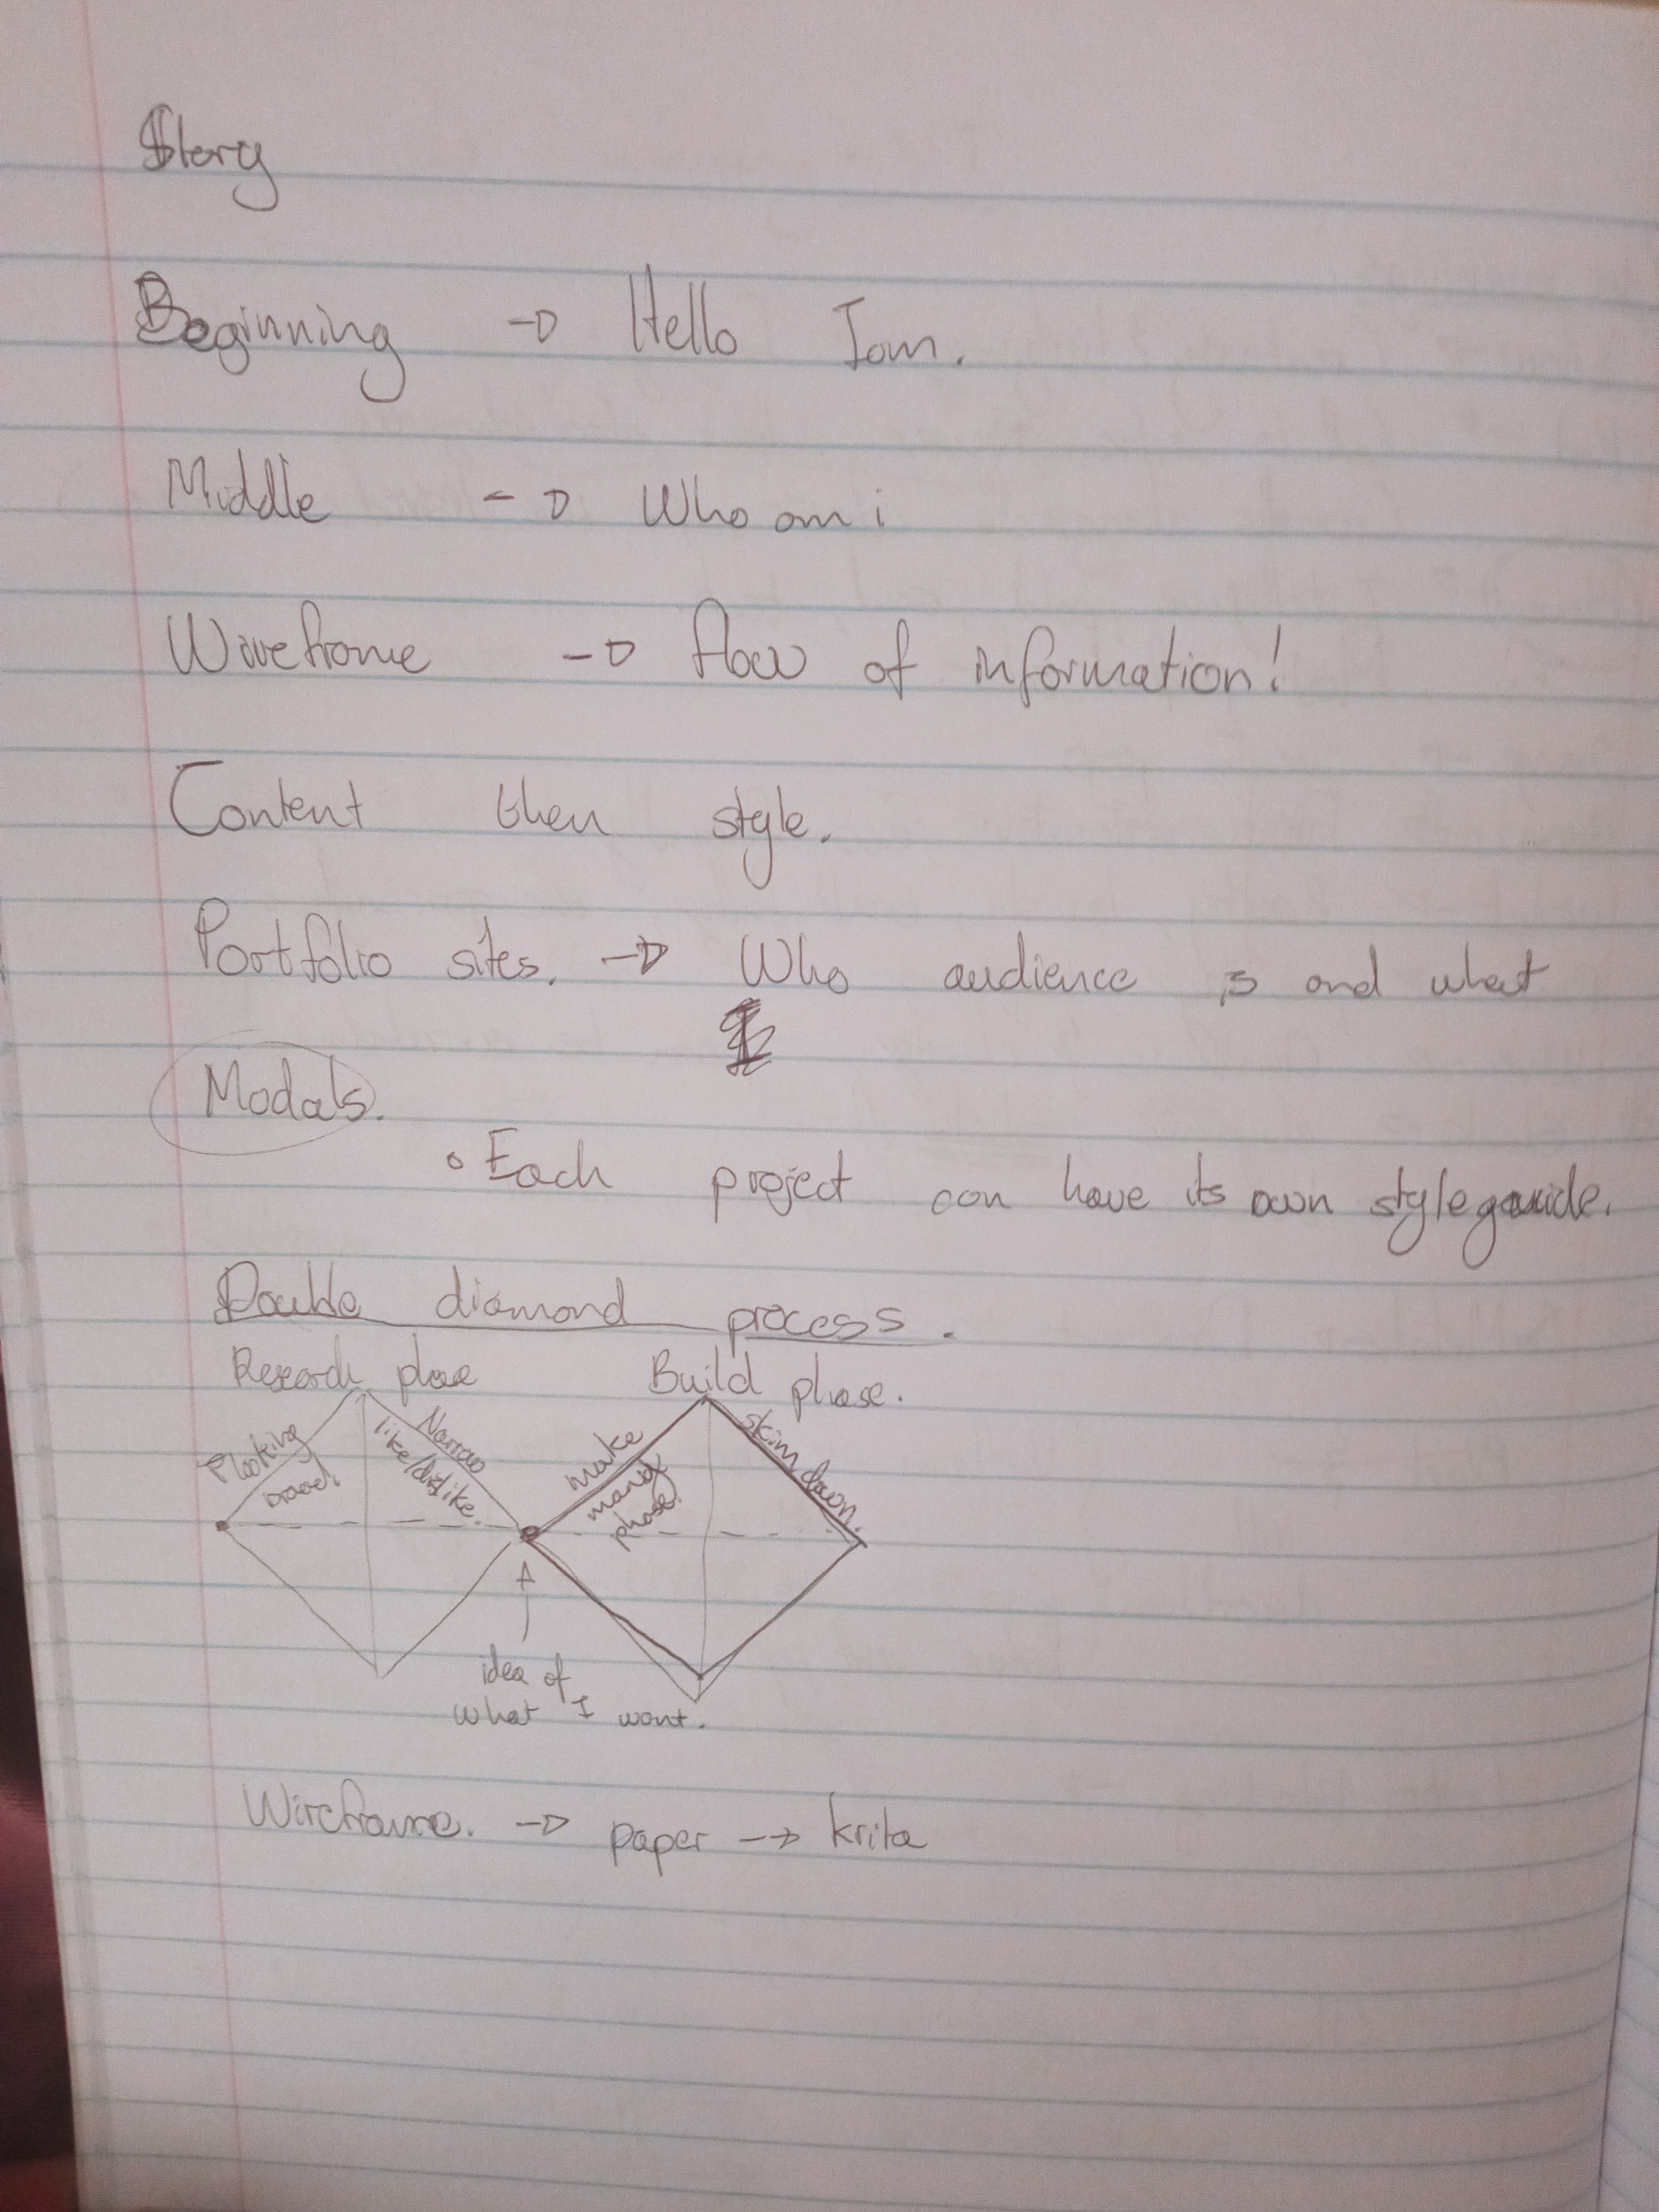 Story
Beginning → Hello Iam.
Middle → Who am i
Wireframe → flow of information!
Content then style.
Portfolio sites. → Who audience is and what
Modals.
• Each project can have its own styleguide.
Double diamond process.
Research phase Build phase.
looking
broad.
Narrow
like/dislike.
make
many
phase.
skim down.
idea of
what I want.
Wireframe. → paper → krita